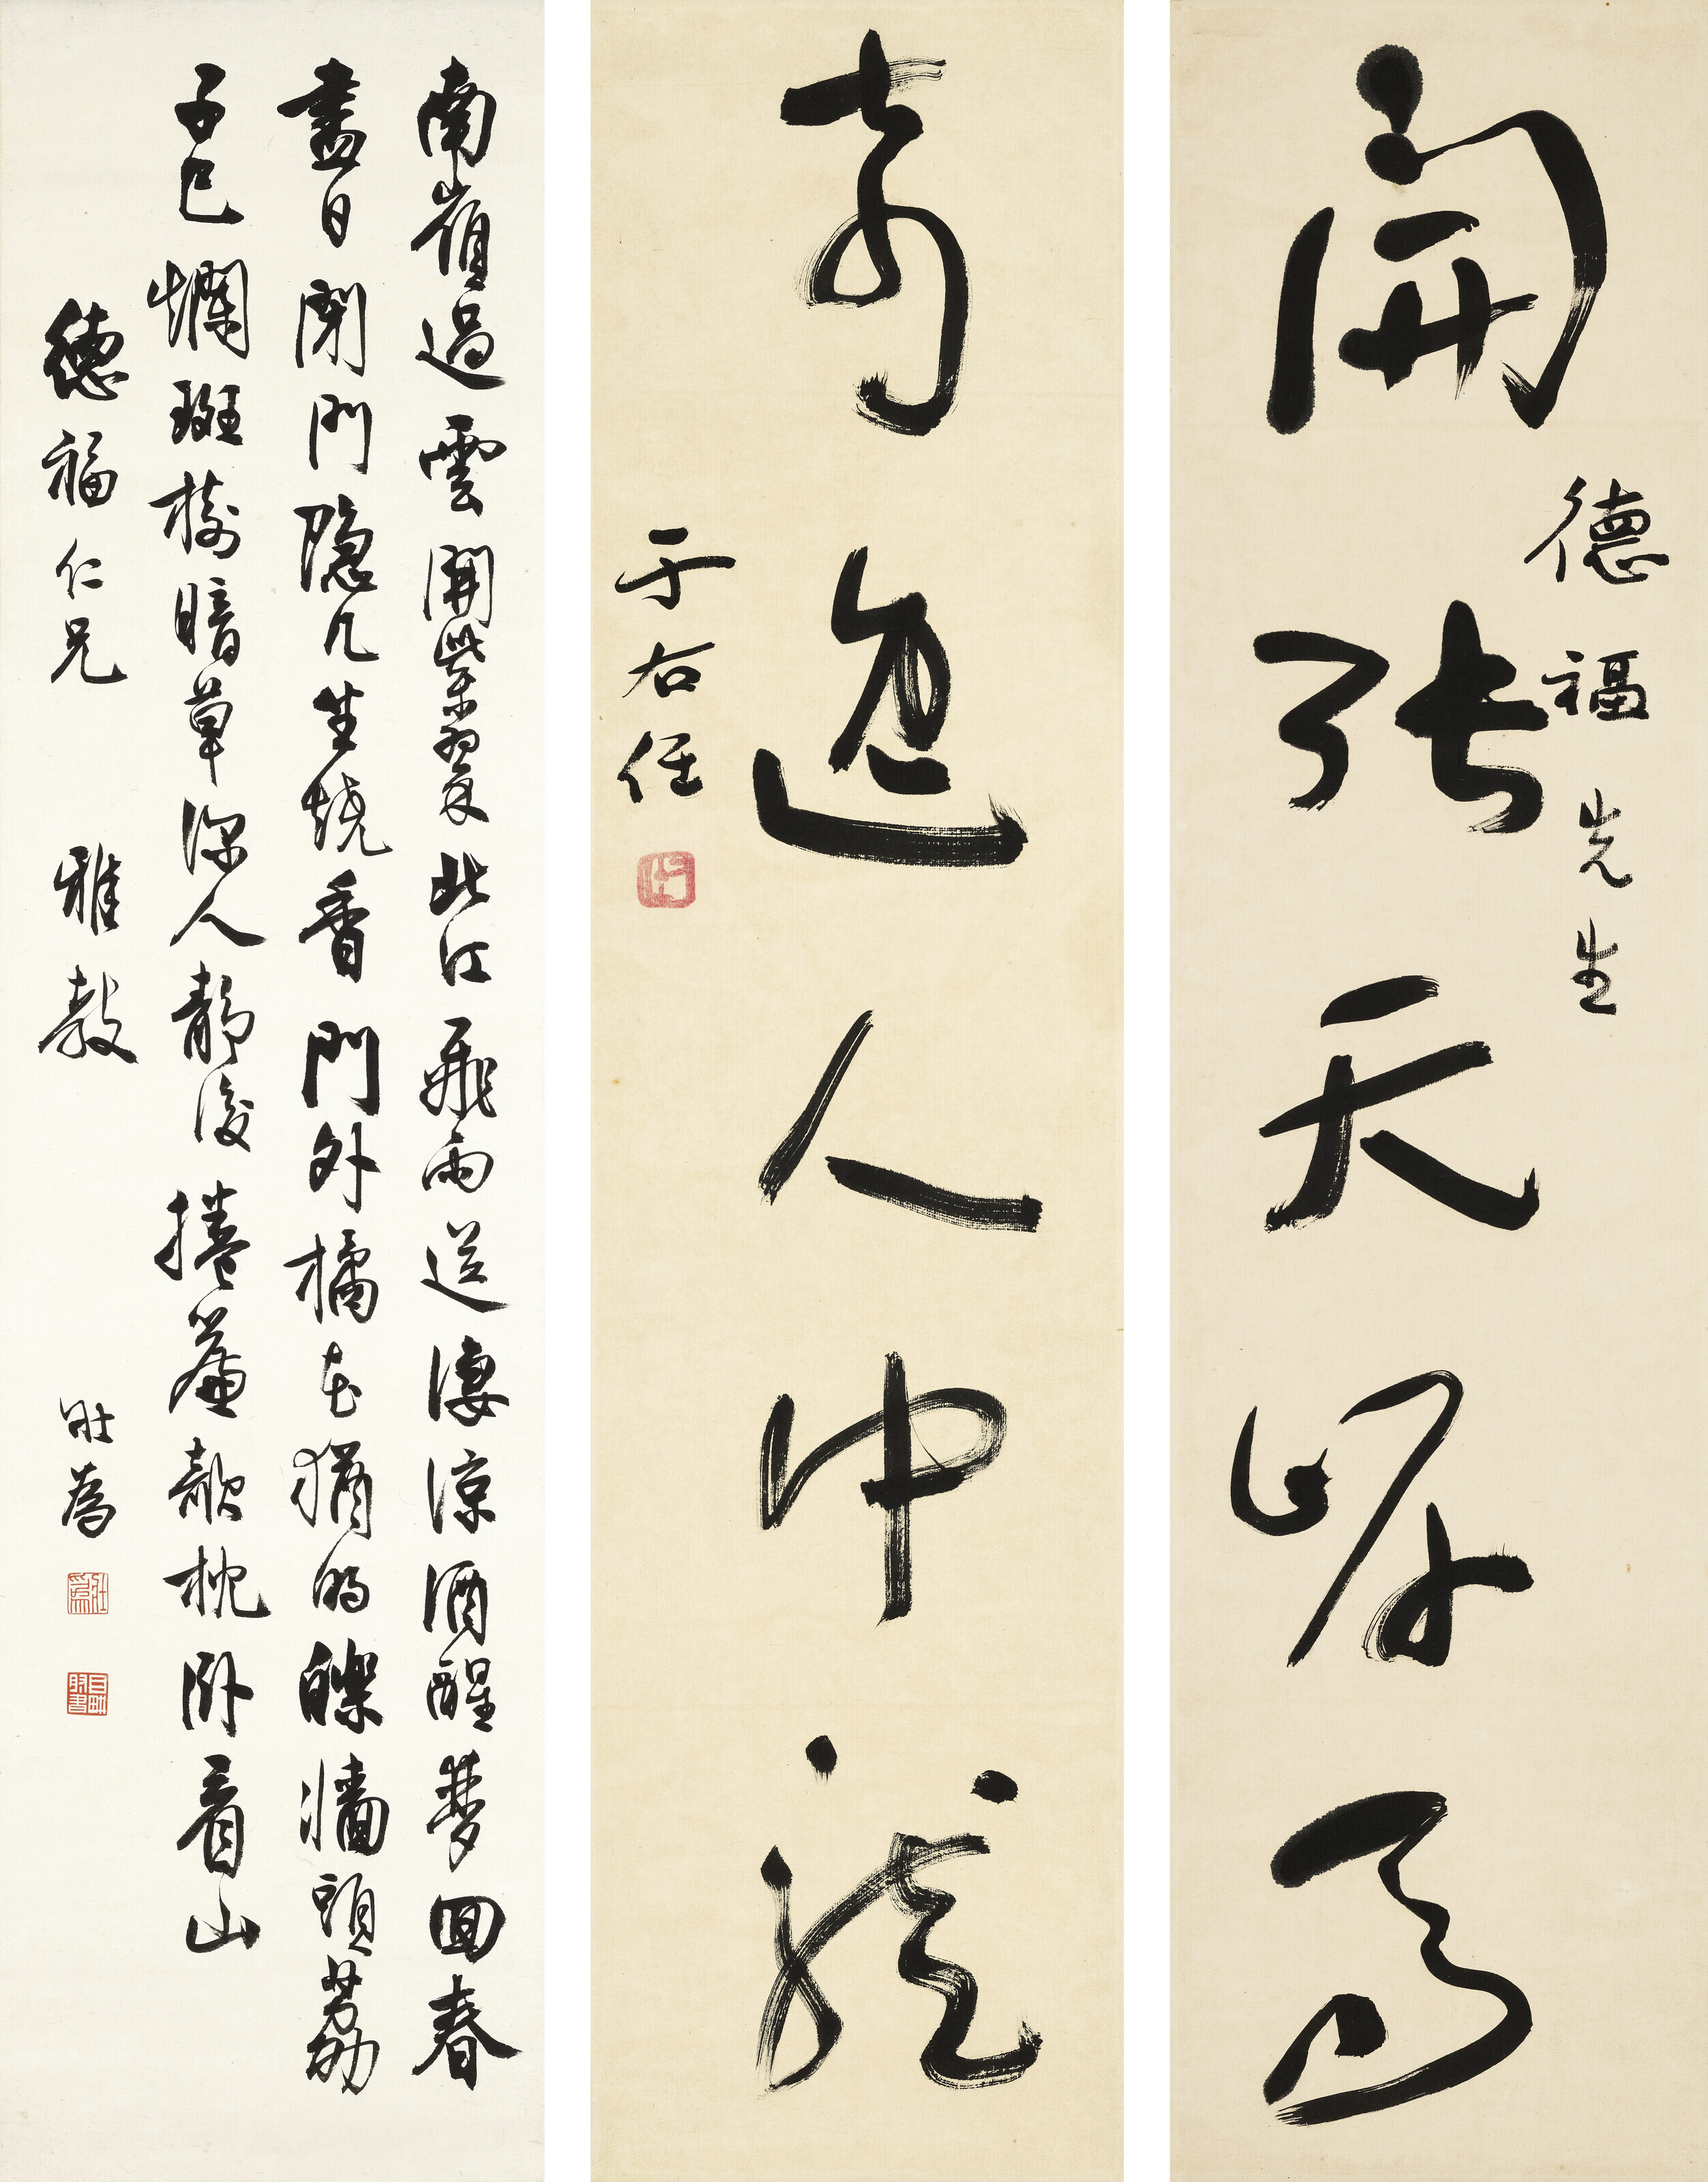 開張天岸馬
德福先生
奇逸人中龍
于右任
南嶺過雲開紫翠北江飛雨送淒涼酒醒夢回春
盡日閉門隱几坐燒香門外橘花猶的皪牆頭荔
子已爛斑樹暗草深人靜後捲簾欹枕臥看山
德福仁兄 雅教 壯為
壯為